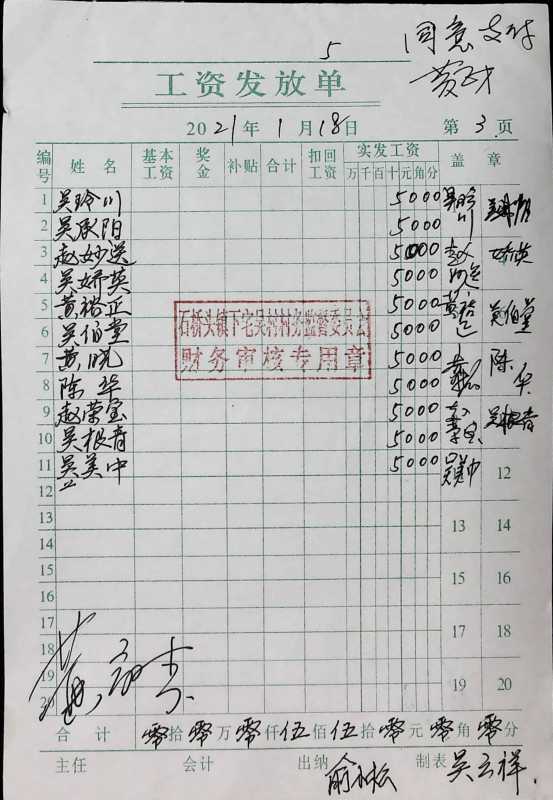 5
同意支付
工资发放单
2021年 1月18日 第3页
编号 姓名 基本工资 奖金 补贴 合计 扣回工资 实发工资 盖章
万千百十元角分
1 吴玲川 5000
2 吴承阳 5000
3 赵妙送 5000
4 吴娇英 5000
5 黄裕正 5000
6 吴伯堂 5000
7 黄晓 5000
8 陈华 5000
9 赵荣宝 5000
10 吴根青 5000
11 吴美中 5000
12 12
13 13 14
14
15 15 16
16
17 17 18
18
19 19 20
20
石桥头镇下宅吴村村务监督委员会
财务审核专用章
娇英
吴伯堂
陈华
吴根青
合计 零拾零万零仟伍佰伍拾零元零角零分
主任 会计 出纳 俞小松 制表 吴云祥